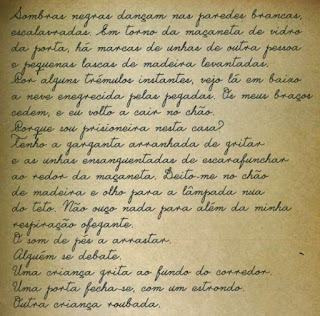 Sombras negras dançam nas paredes brancas,
escalavradas. Em torno da maçaneta de vidro
da porta, há marcas de unhas de outra pessoa
e pequenas lascas de madeira levantadas.
Por alguns trémulos instantes, vejo lá em baixo
a neve enegrecida pelas pegadas. Os meus braços
cedem, e eu volto a cair no chão.
Porque sou prisioneira nesta casa?
Tenho a garganta arranhada de gritar
e as unhas ensanguentadas de escarafunchar
ao redor da maçaneta. Deito-me no chão
de madeira e olho para a lâmpada nua
do teto. Não ouço nada para além da minha
respiração ofegante.
O som de pés a arrastar.
Alguém se debate.
Uma criança grita ao fundo do corredor.
Uma porta fecha-se, com um estrondo.
Outra criança roubada.